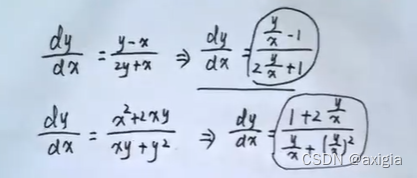 dy/dx = (y-x)/(2y+x) ⇒ dy/dx = (y/x -1)/(2 y/x +1)
dy/dx = (x²+2xy)/(xy+y²) ⇒ dy/dx = (1+2 y/x)/(y/x + (y/x)²)
CSDN @axigia